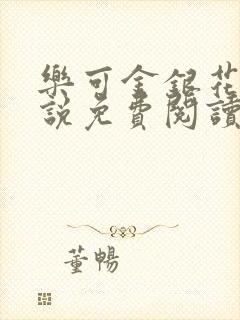 樂可金銀花
說免費閱讀
董暢